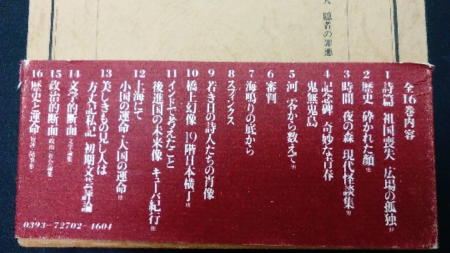 隠者の罪
全16巻内容
1 詩篇 祖国喪失 広場の孤独
2 歴史 砕かれた顔
3 時間 夜の森 現代怪談集
4 記念碑 奇妙な青春
鬼無鬼島
5 河 零から数えて
6 審判
7 海鳴りの底から
8 スフィンクス
9 若き日の詩人たちの肖像
10 橋上幻像 19階日本横丁
11 インドで考えたこと
後進国の未来像 キューバ紀行
12 上海にて
小国の運命・大国の運命
13 美しきもの見し人は
方丈記私記 初期文芸評論
14 文学的断面
15 政治的断面
16 歴史と運命
0393-72702-4604